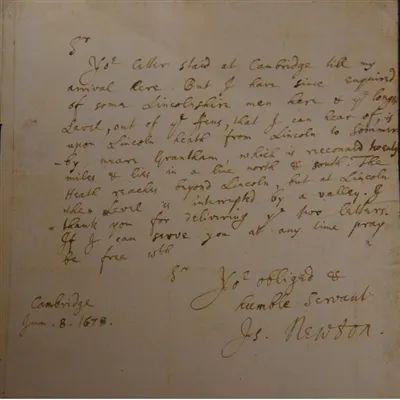 Sr
Yor letter staid at Cambridge till my
arrival here. But I have since enquired
of some Lincolnshire men here & ye longest
Level, out of ye Fens, that I can hear of, is
upon Lincoln heath from Lincoln to
by neare Grantham, which is reccond twenty
miles & lies in a line north & south. The
Heath reaches beyond Lincoln, but at Lincoln
the Level is interrupted by a valley. I
thank you for delivering ye two letters.
If I can serve you at any time pray
be free wth
Sr
Yor obliged &
humble Servant
Is. Newton.
Cambridge
Jun. 8. 1678.